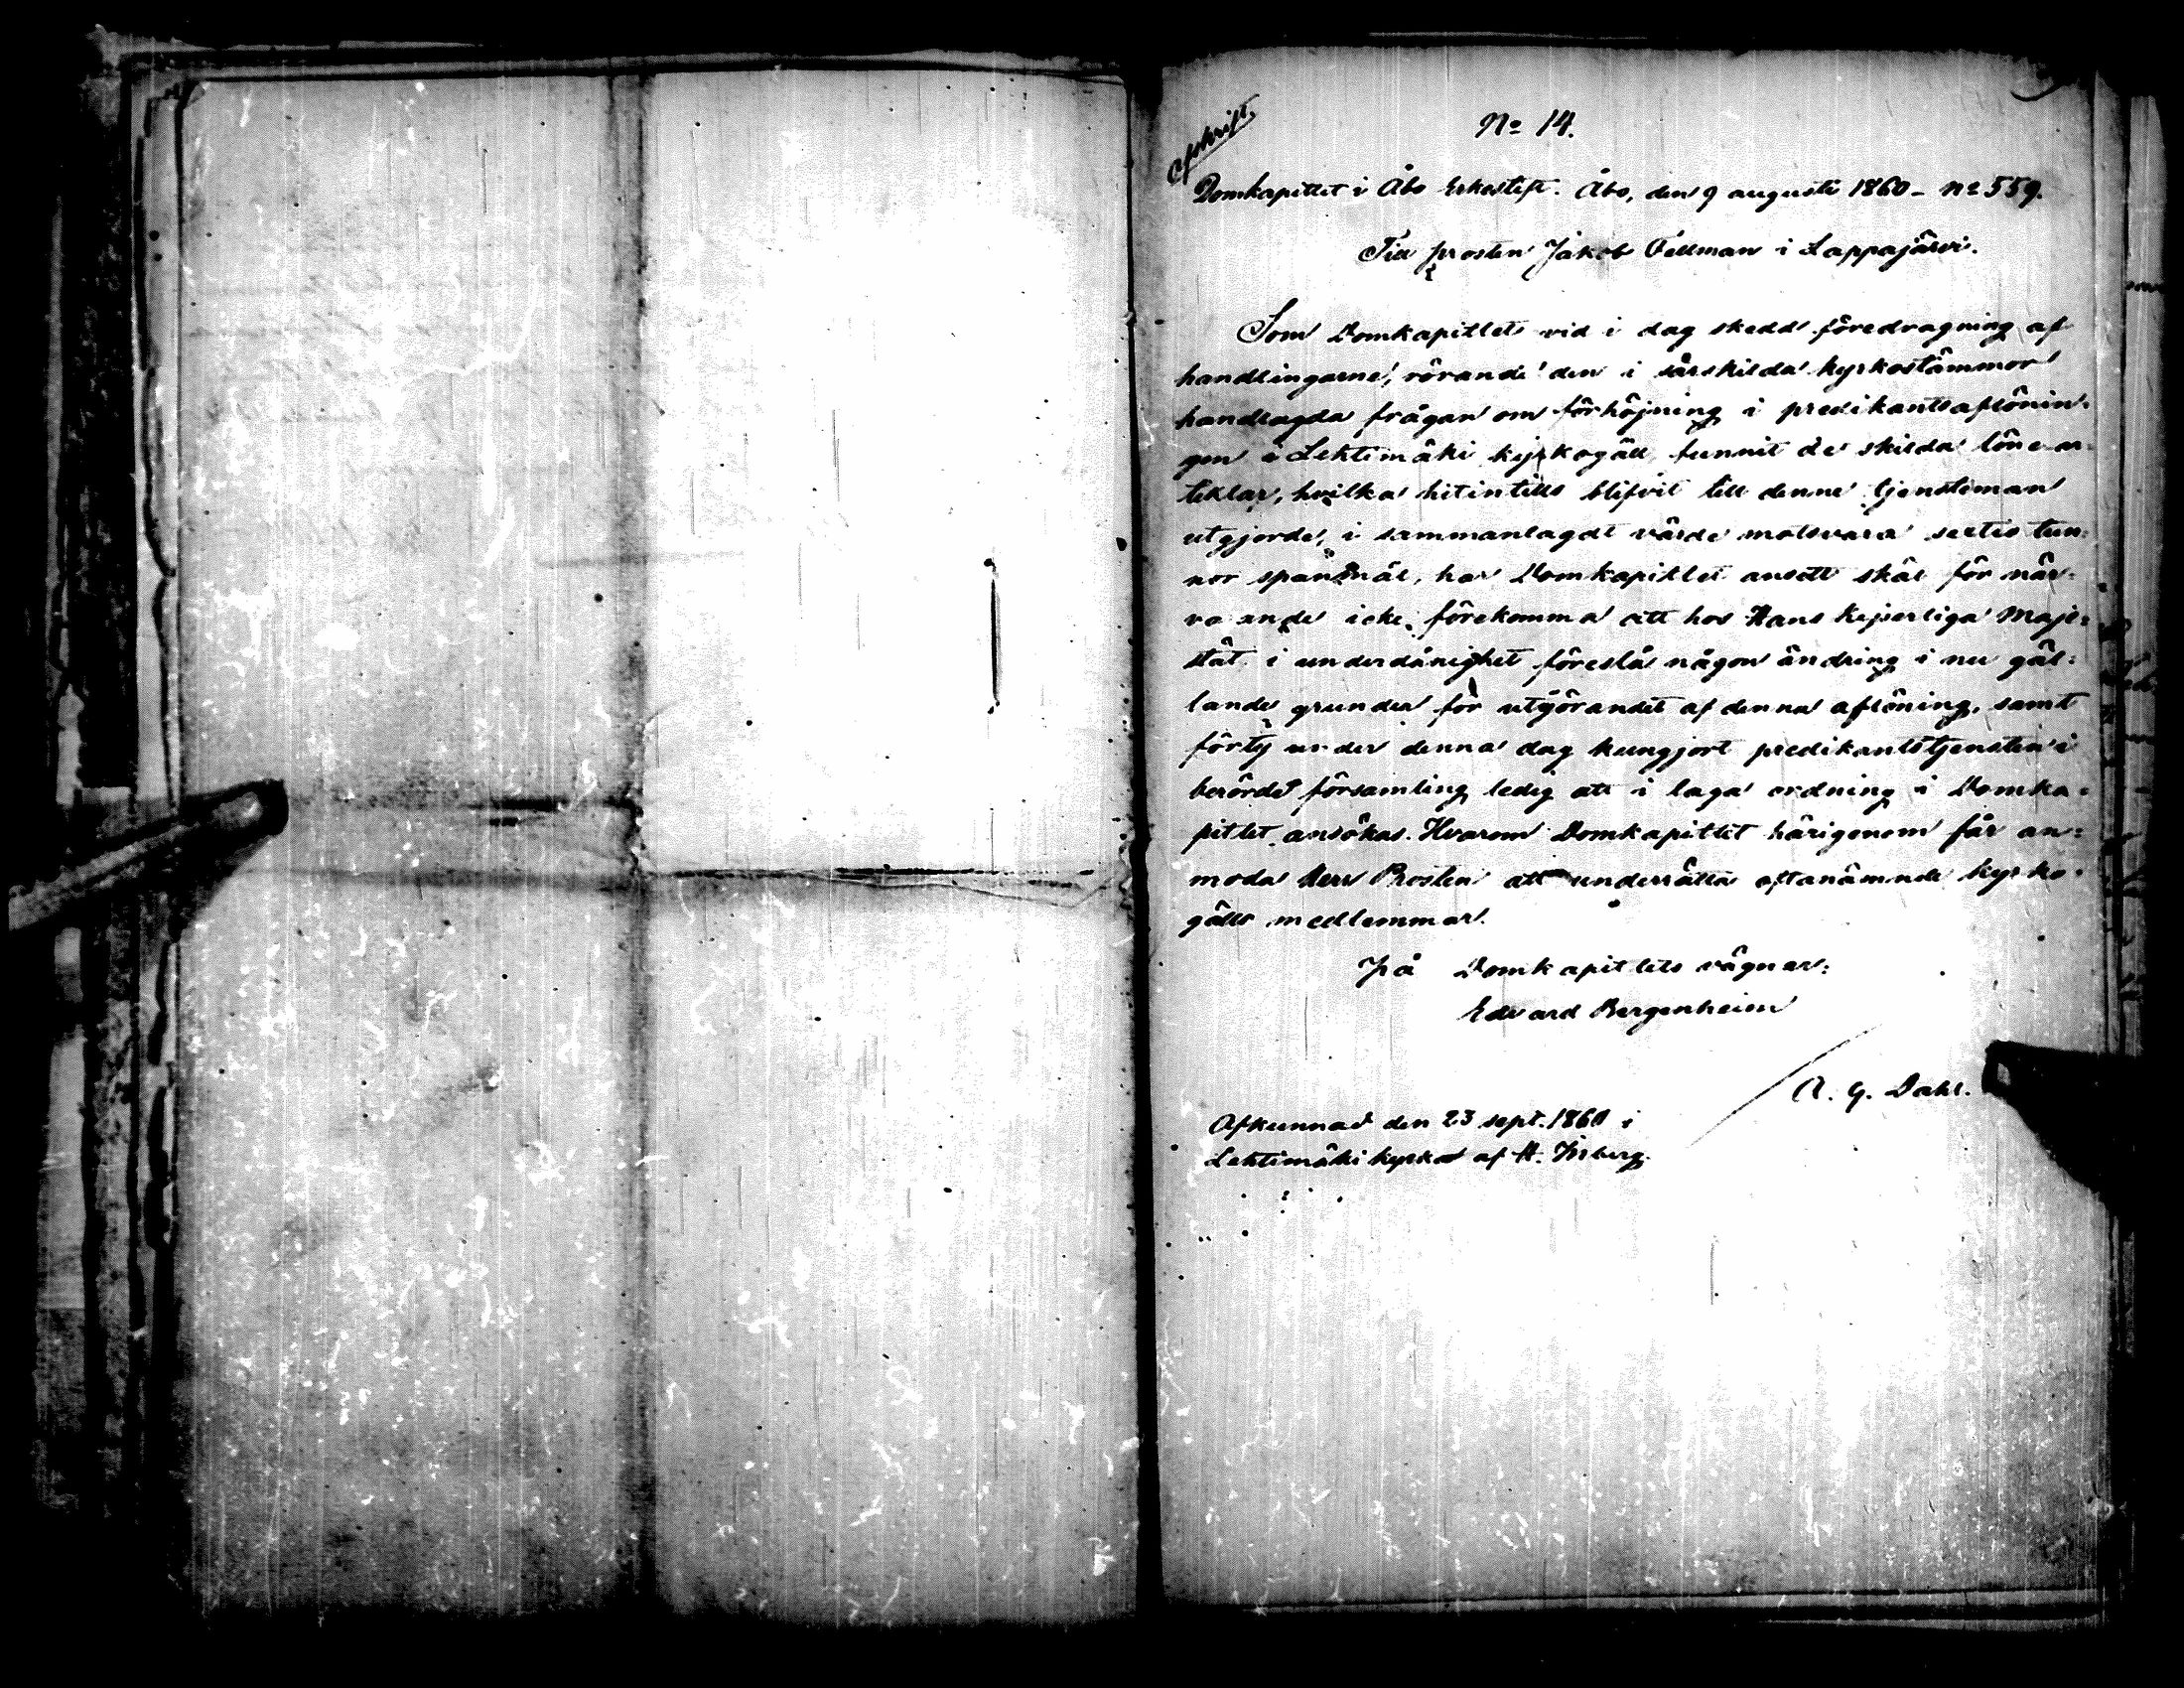 Afskrift.
No 14.
Domkapitlet i Åbo Erkestift. Åbo, den 9 augusti 1860 - No 559.
Till prosten Jakob Fellman i Lappajärvi.
Som Domkapitlet vid i dag skedd föredragning af
handlingarne, rörande den i särskilda kyrkostämmor
handlagda frågan om förhöjning i predikantsaflönin-
gen i Lehtimäki kyrkogäll, funnit de skilda löne ar-
tiklar, hvilka hitintills blifvit till denne tjensteman
utgjorde, i sammanlagdt värde motsvara sextio tun-
nor spanmål, har Domkapitlet ansett skäl för när-
va ande icke förekomma att hos Hans Kejserliga Maje-
stät i underdånighet föreslå någon ändring i nu gäl-
lande grunder för utgörandet af denna aflöning, samt
förty under denna dag kungjort predikantstjensten i
berörde församling ledig att i laga ordning i Domka-
pitlet ansökas. Hvarom Domkapitlet härigenom får an-
moda Herr Prosten att underrätta oftanämnde kyrko-
gälls medlemmar.
På Domkapitlets vägnar:
Edvard Bergenheim
A. G. Dahl.
Afkunnad den 23 sept. 1860 i
Lehtimäki kyrka af H.